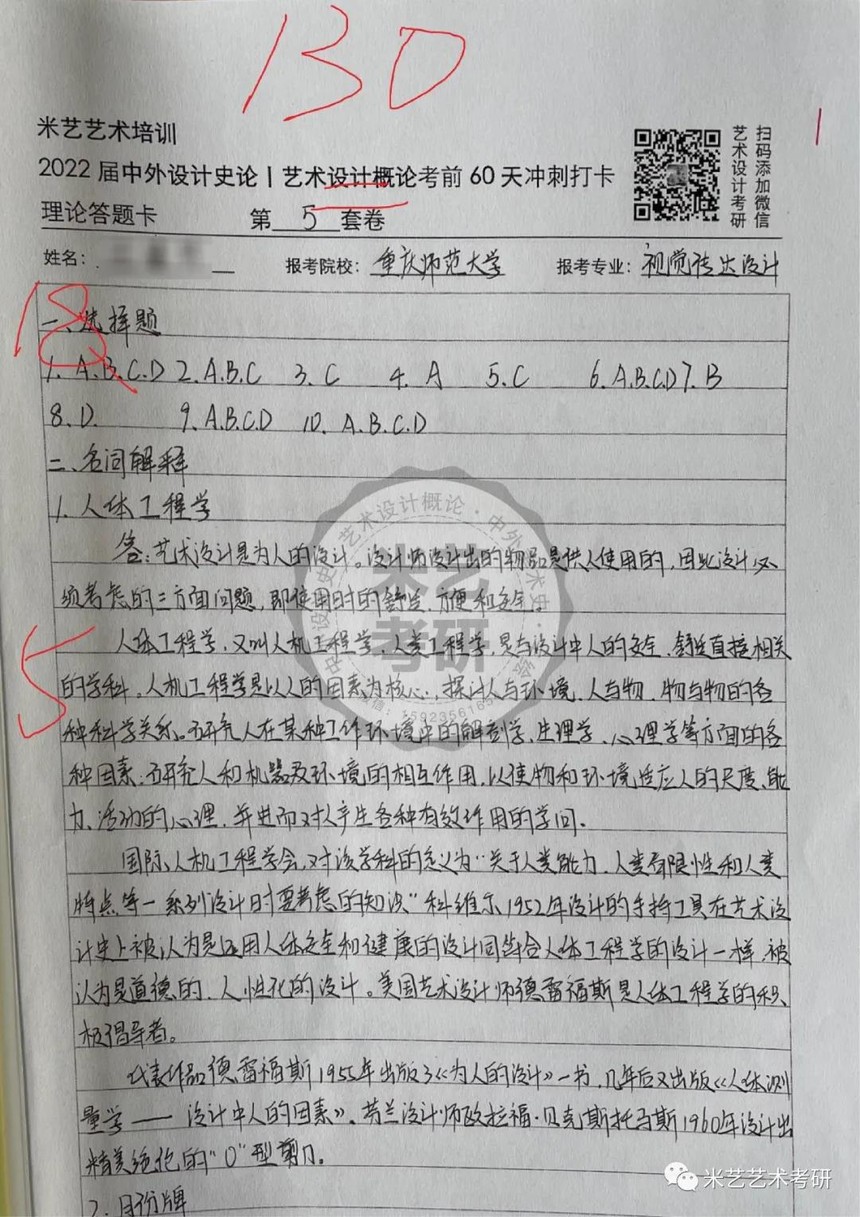 130
1
米艺艺术培训
2022 届中外设计史论 | 艺术设计概论考前 60 天冲刺打卡
理论答题卡 第 5 套卷
扫码添加微信
艺术设计考研
姓名: 报考院校: 重庆师范大学 报考专业: 视觉传达设计
18
一、选择题
1. A.B.C.D 2. A.B.C 3. C 4. A 5. C 6. A.B.C.D 7. B
8. D. 9. A.B.C.D 10. A.B.C.D
二、名词解释
1. 人体工程学
答:艺术设计是为人的设计。设计师设计出的物品是供人使用的,因此设计必
须考虑的三方面问题,即使用时的舒适、方便和安全。
5
人体工程学,又叫人机工程学、人类工程学,是与设计中人的安全、舒适直接相关
的学科。人机工程学是以人的因素为核心,探讨人与环境、人与物、物与物的各
种科学关系。研究人在某种工作环境中的解剖学、生理学、心理学等方面的各
种因素,研究人和机器及环境的相互作用,以使物和环境适应人的尺度、能
力、活动的心理,并进而对人产生各种有效作用的学问。
国际人机工程学会,对该学科的定义为“关于人类能力、人类局限性和人类
特点等一系列设计时要考虑的知识”科维尔1952年设计的手持工具在艺术设
计史上被认为是运用人体安全和健康的设计同结合人体工程学的设计一样,被
认为是道德的、人性化的设计。美国艺术设计师德雷福斯是人体工程学的积
极倡导者。
代表作品德雷福斯1955年出版了《为人的设计》一书,几年后又出版《人体测
量学——设计中人的因素》。芬兰设计师欧拉福·贝克斯托马斯1960年设计出
精美绝伦的“O”型剪刀。
2. 月份牌
米艺
考研
艺术设计概论·中外
米艺艺术考研